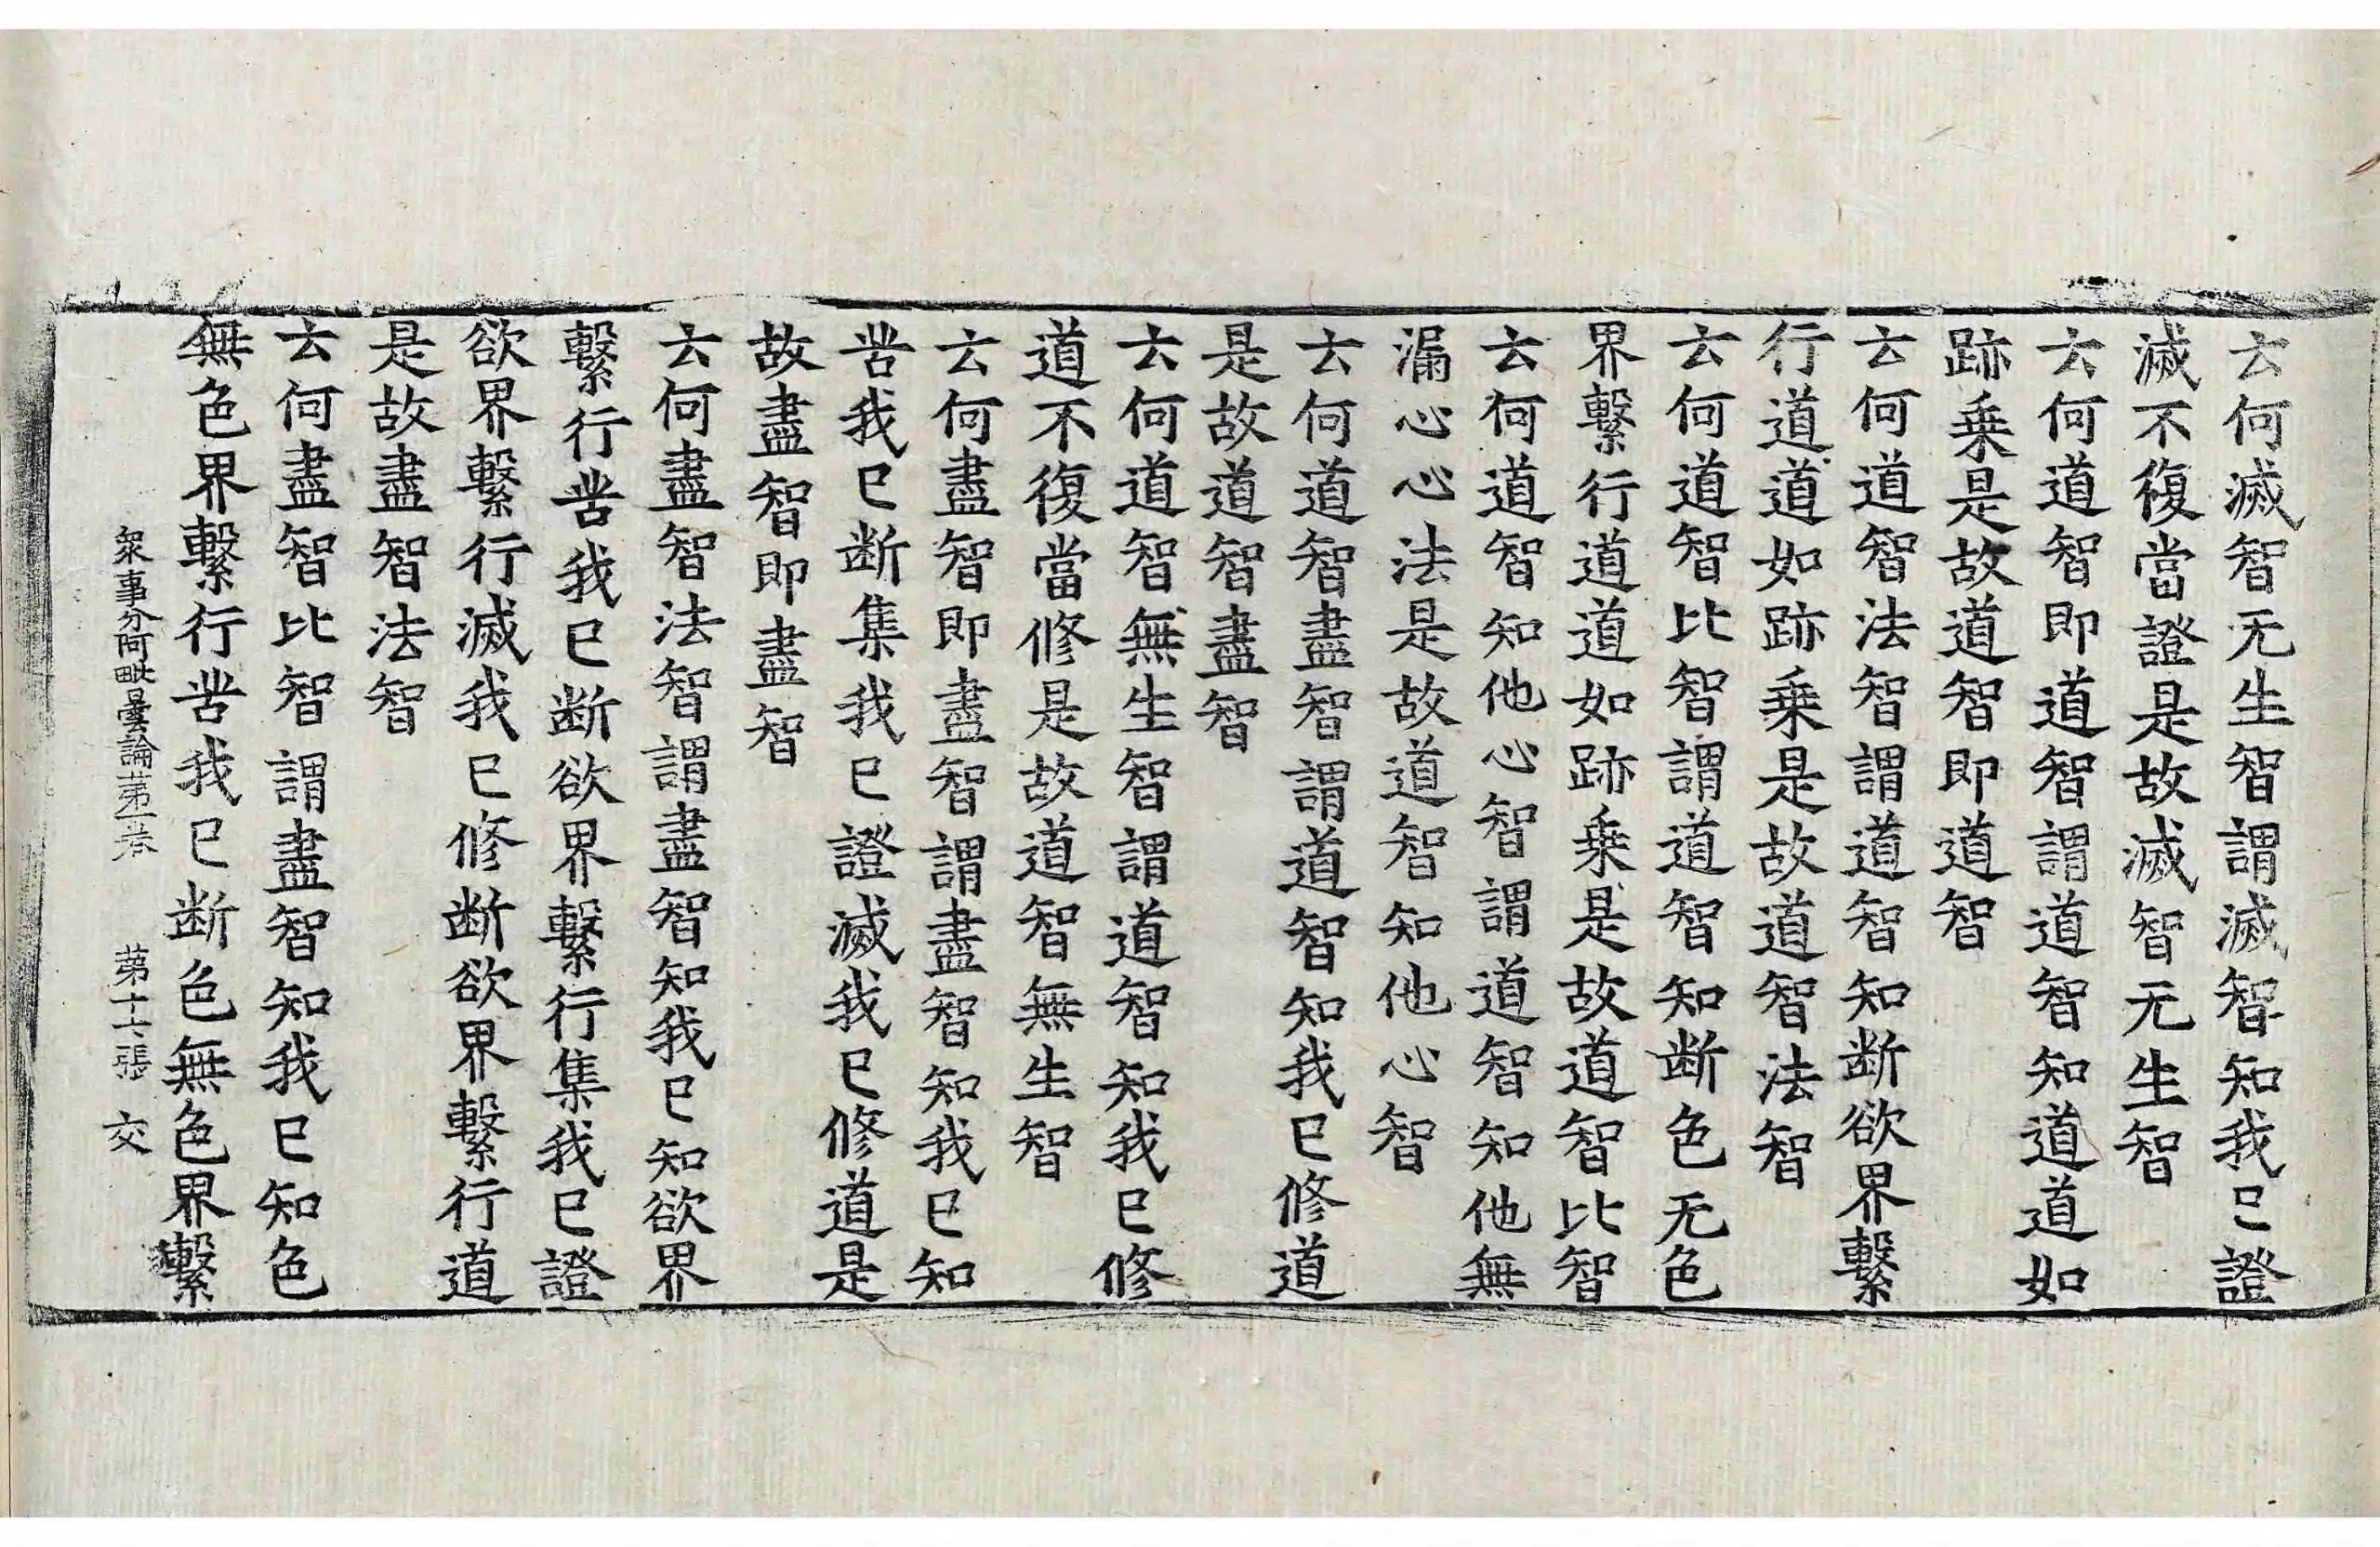 云何滅智无生智謂滅智知我已證
滅不復當證是故滅智无生智
云何道智即道智謂道智知道道如
跡乗是故道智即道智
云何道智法智謂道智知断欲界繫
行道道如跡乗是故道智法智
云何道智比智謂道智知断色无色
界繫行道道如跡乗是故道智比智
云何道智知他心智謂道智知他無
漏心心法是故道智知他心智
云何道智盡智謂道智知我已修道
是故道智盡智
云何道智無生智謂道智知我已修
道不復當修是故道智無生智
云何盡智即盡智謂盡智知我已知
苦我已断集我已證滅我已修道是
故盡智即盡智
云何盡智法智謂盡智知我已知欲界
繫行苦我已断欲界繫行集我已證
欲界繫行滅我已修断欲界繫行道
是故盡智法智
云何盡智比智謂盡智知我已知色
無色界繫行苦我已断色無色界繫
衆事分阿毗曇論苐一卷 苐十七張 交